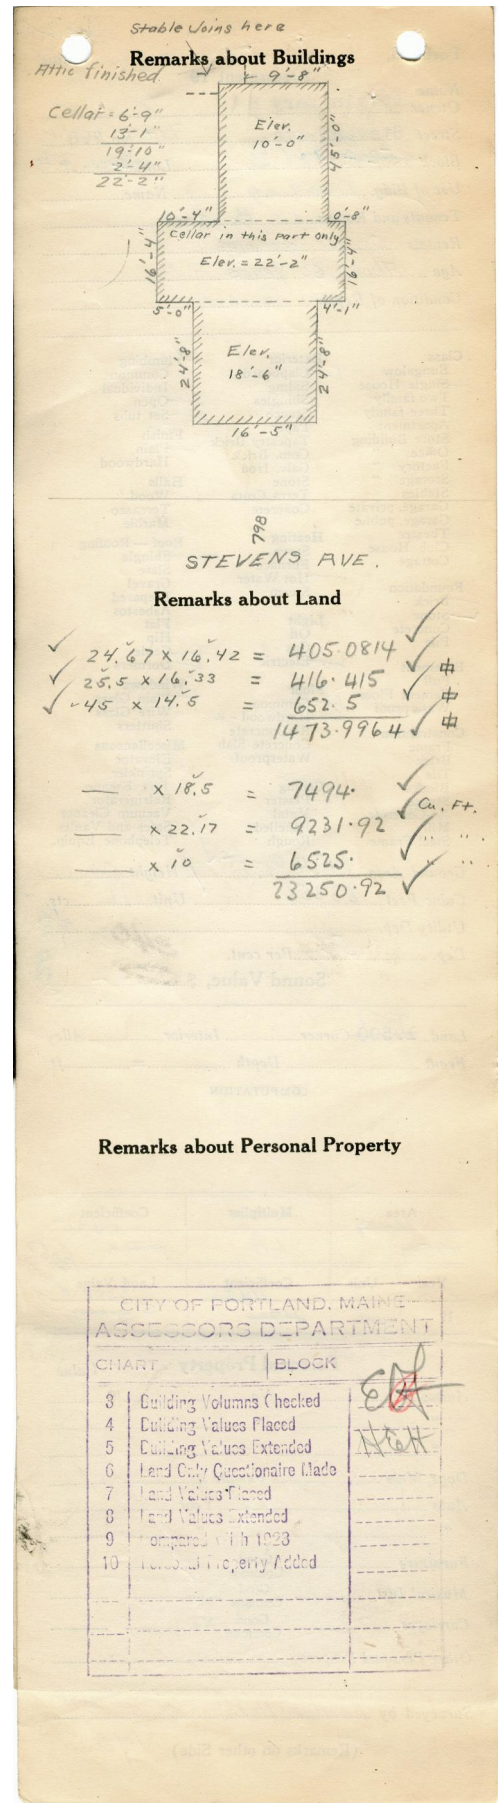 Stable Joins here
Remarks about Buildings
Attic finished.
9'-8"
Cellar = 6'-9"
13'-1"
19'-10"
2'-4"
22'-2"
Elev.
10'-0"
45'-0"
10'-4"
0'-8"
Cellar in this part only
16'-4"
Elev. = 22'-2"
16'-4"
5'-0"
4'-1"
24'-8"
Elev.
18'-6"
24'-8"
16'-5"
798
STEVENS AVE.
Remarks about Land
24.67 x 16.42 = 405.0814
25.5 x 16.33 = 416.415
45 x 14.5 = 652.5
1473.9964
x 18.5 = 7494.
Cu. Ft.
x 22.17 = 9231.92 " "
x 10 = 6525. " "
23250.92
Remarks about Personal Property
CITY OF PORTLAND, MAINE
ASSESSORS DEPARTMENT
CHART BLOCK
3 Building Volumns Checked
4 Building Values Placed
5 Building Values Extended
6 Land Only Questionaire Made
7 Land Values Placed
8 Land Values Extended
9 Compared With 1923
10 Personal Property Added